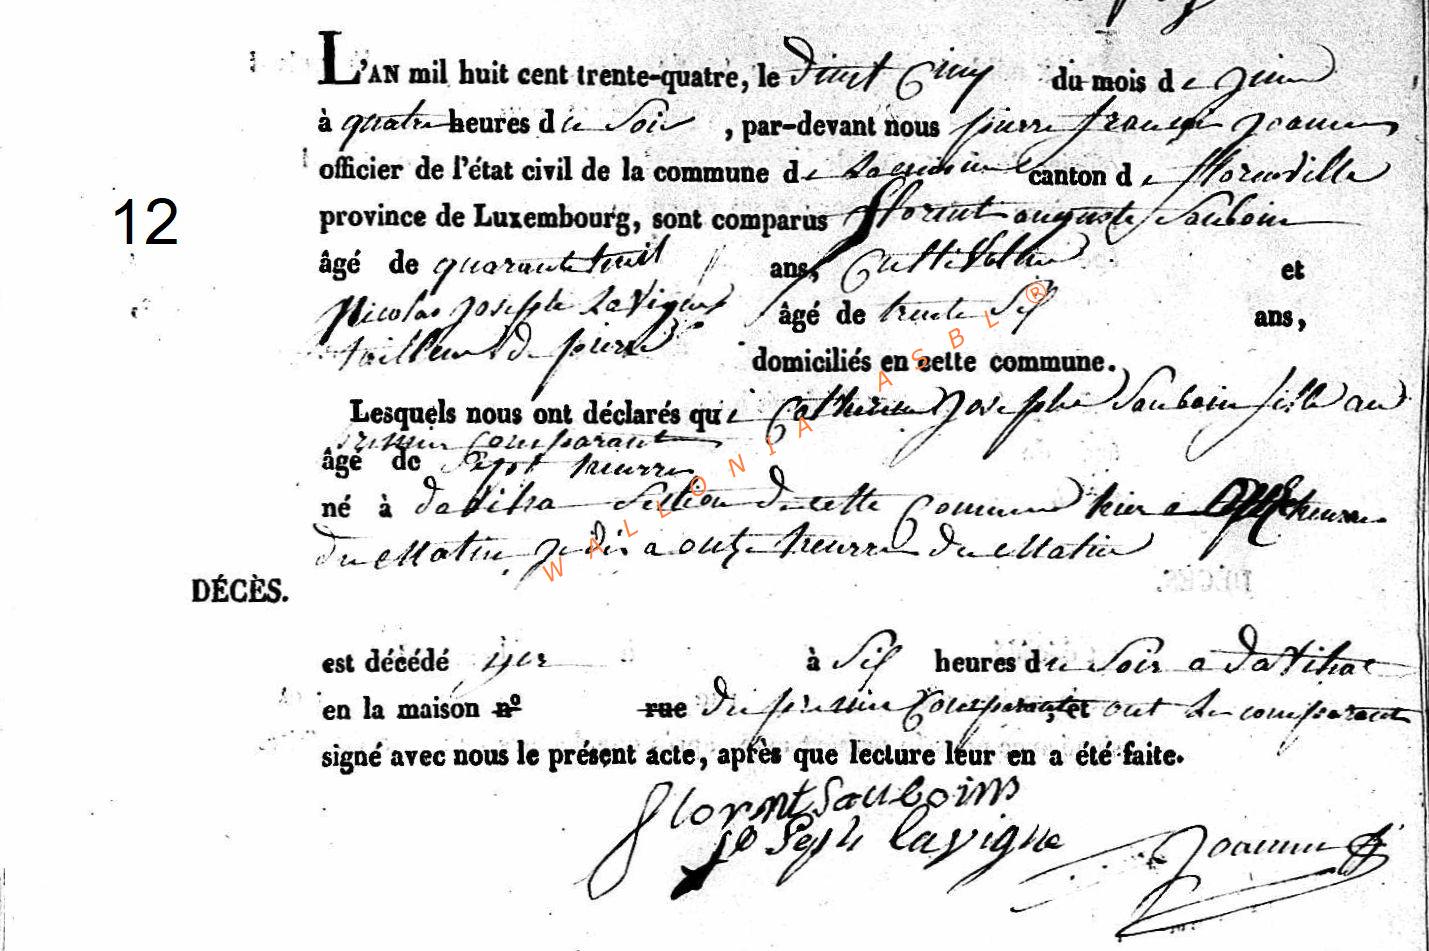 L'AN mil huit cent trente-quatre, le vint cinq du mois de juin
à quatre heures du Soir, par-devant nous pierre françois Joannes
officier de l'état civil de la commune de canton de florenville
province de Luxembourg, sont comparus florent auguste Sauboin
12
âgé de quarante huit ans, Cultivateur et
Nicolas Joseph Lavigne âgé de trente Six ans,
tailleur de pierre domiciliés en cette commune.
Lesquels nous ont déclarés que Catherine Josephe Sauboin fille au
premier comparant
âgé de Sept heures
né à Section de cette Commune hier a onze heures
du Matin, je dis a onze heures du Matin
DÉCÈS.
est décédé yer à Six heures du Soir a
en la maison nº rue du premier Comparant, et ont les comparants
signé avec nous le présent acte, après que lecture leur en a été faite.
florent Sauboin
joseph lavigne Joannes
WALLONIA ASBL ®